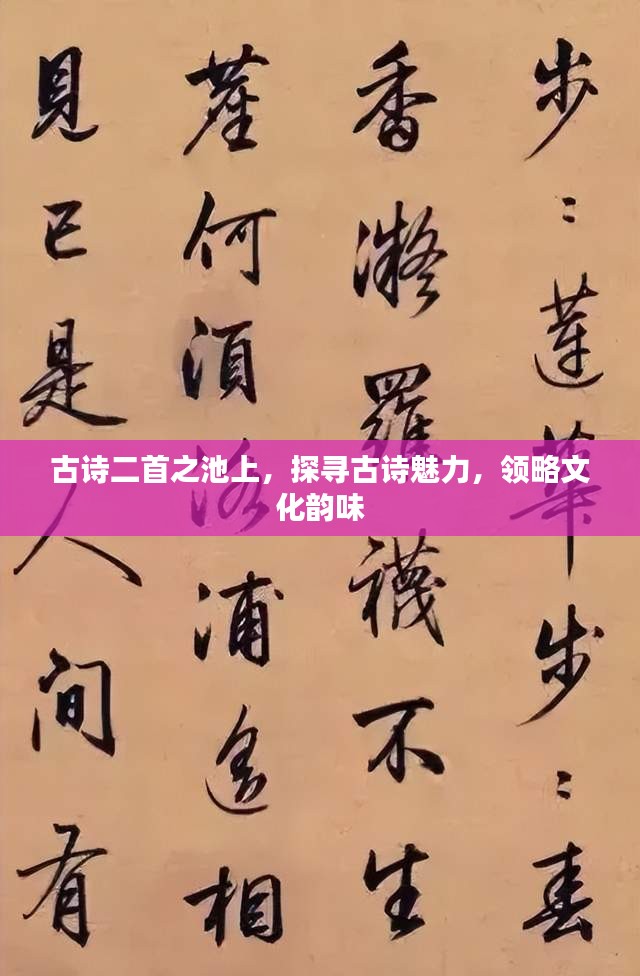 步〻蓮華步〻春
香凝羅襪不生
塵何須洛浦遥相
見已是人間有
古诗二首之池上，探寻古诗魅力，领略文
化韵味